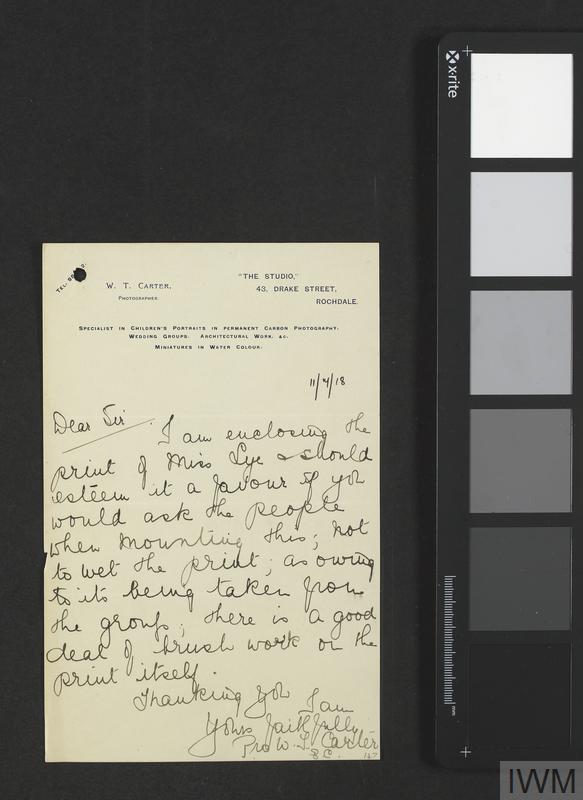 W. T. CARTER,
PHOTOGRAPHER.
"THE STUDIO,"
43, DRAKE STREET,
ROCHDALE.
SPECIALIST IN CHILDREN'S PORTRAITS IN PERMANENT CARBON PHOTOGRAPHY.
WEDDING GROUPS. ARCHITECTURAL WORK. &c.
MINIATURES IN WATER COLOUR.
TEL.
11/4/18
Dear Sir
I am enclosing the
print of Miss Lye & should
esteem it a favour if you
would ask the people
when mounting this; not
to wet the print; as owing
to its being taken from
the group; there is a good
deal of brush work on the
print itself.
Thanking you I am
Yours faithfully
Pro W. T. Carter
x-rite
mm
IWM